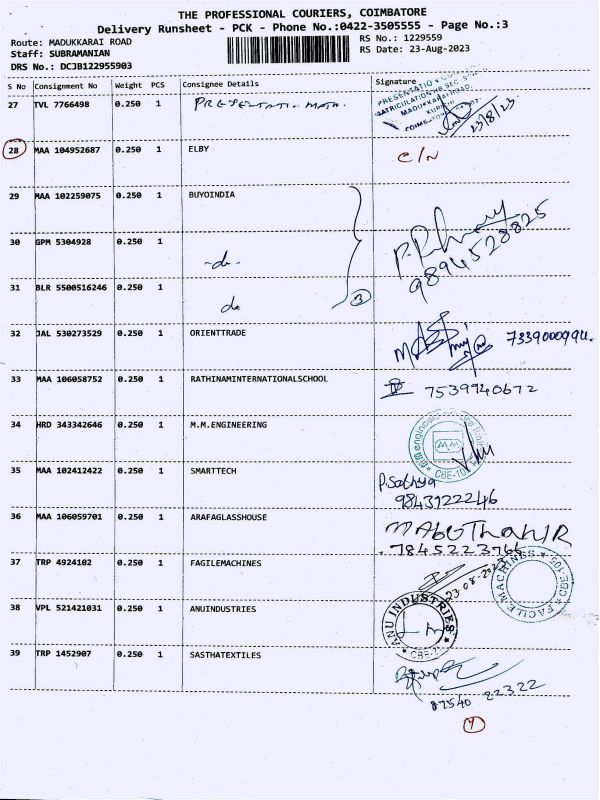 THE PROFESSIONAL COURIERS, COIMBATORE
Delivery Runsheet - PCK - Phone No.:0422-3505555 - Page No.:3
Route: MADUKKARAI ROAD
Staff: SUBRAMANIAN
DRS No.: DCJB122955903
RS No.: 1229559
RS Date: 23-Aug-2023
S No Consignment No Weight PCS Consignee Details Signature
27 TVL 7766498 0.250 1
23/8/23
28 MAA 104952687 0.250 1 ELBY C/N
29 MAA 102259075 0.250 1 BUYOINDIA
30 GPM 5304928 0.250 1 -do-
9894528825
31 BLR 5500516246 0.250 1 do
3
32 JAL 530273529 0.250 1 ORIENTTRADE
33 MAA 106058752 0.250 1 RATHINAMINTERNATIONALSCHOOL 7539940672
34 HRD 343342646 0.250 1 M.M.ENGINEERING
35 MAA 102412422 0.250 1 SMARTTECH P.Sathya
9843122246
36 MAA 106059701 0.250 1 ARAFAGLASSHOUSE
37 TRP 4924102 0.250 1 FAGILEMACHINES 23-08-2023
FACILE MACHINES
38 VPL 521421031 0.250 1 ANUINDUSTRIES ANU INDUSTRIES
39 TRP 1452907 0.250 1 SASTHATEXTILES
87540 22322